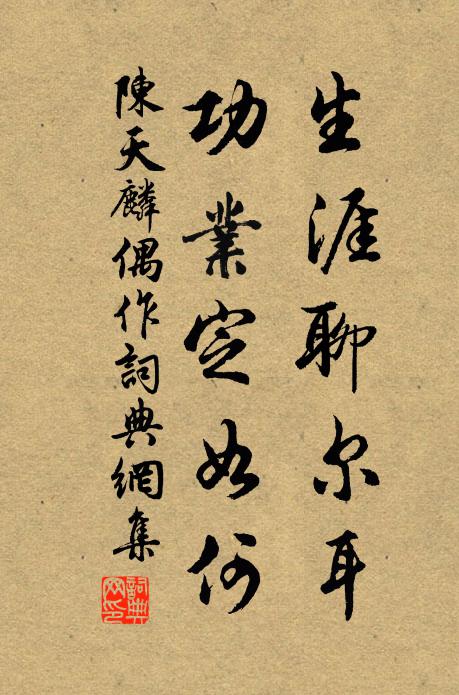 生涯聊尔耳
功業定如何
陳天麟偶作詞典網集
詞典网印